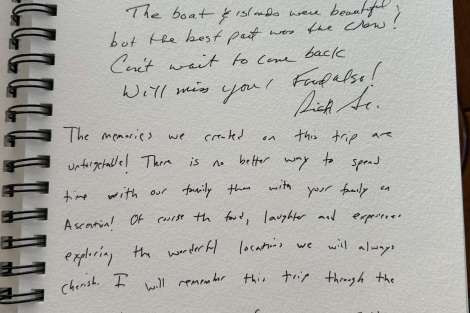 The boat & islands were beautiful,
but the best part was the crew!
Can't wait to come back
Will miss you! Food also!
Dick Sr.
The memories we created on this trip are
unforgetable! There is no better way to spend
time with our family then with your family on
Ascension! Of course th food, laughter and experience
exploring the wonderful locations we will always
cherish. I will remember this trip through the